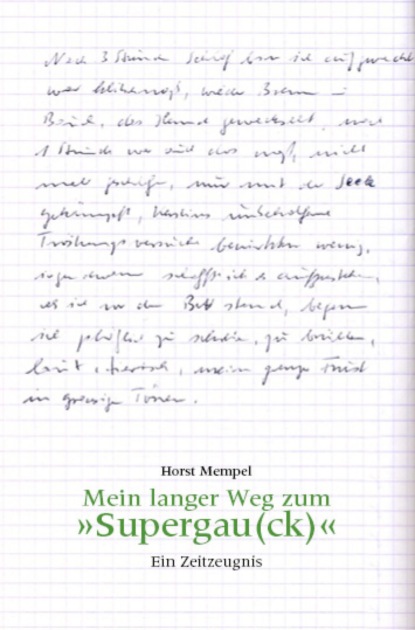 Nach 3 Stunden Schlaf bin ich aufgewacht
war klitschnaß, wieder
das Hemd gewechselt, nach
1 Stunde war auch das naß, nicht
mehr geschlafen, nur mit der Seele
gekämpft,
Tröstungsversuche bewirkten wenig,
schaffte ich es aufzustehen,
als ich vor dem Bett stand, begann
ich plötzlich zu schreien, zu brüllen,
laut, tierisch, mein ganzer Frust
in Tönen.
Horst Mempel
Mein langer Weg zum
»Supergau(ck)«
Ein Zeitzeugnis